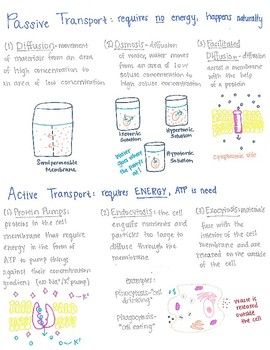 Passive Transport: requires no energy, happens naturally
(1) Diffusion - movement
of materials from an area
of high concentration to
an area of low concentration
(2) Osmosis - diffusion
of water, water moves
from an area of low
solute concentration to
high solute concentration
(3) Facilitated
Diffusion - diffusion
across a membrane
with the help
of a protein
Semipermeable
Membrane
Isotonic
Solution
Hypertonic
Solution
Hypotonic
Solution
Active Transport: requires ENERGY, ATP is need
(1) Protein Pumps:
proteins in the cell
membrane that require
energy in the form
of ATP to pump things
against their concentration
gradient
(2) Endocytosis: the cell
engulfs nutrients and
particles too large to
diffuse through the
membrane
Examples:
Pinocytosis-"cell
drinking"
Phagocytosis-
"cell eating"
(3) Exocytosis:
fuse with the interior
of the cell
membrane and are
released on the outside
of the cell
K+
K+
Waste is
released
outside the
cell